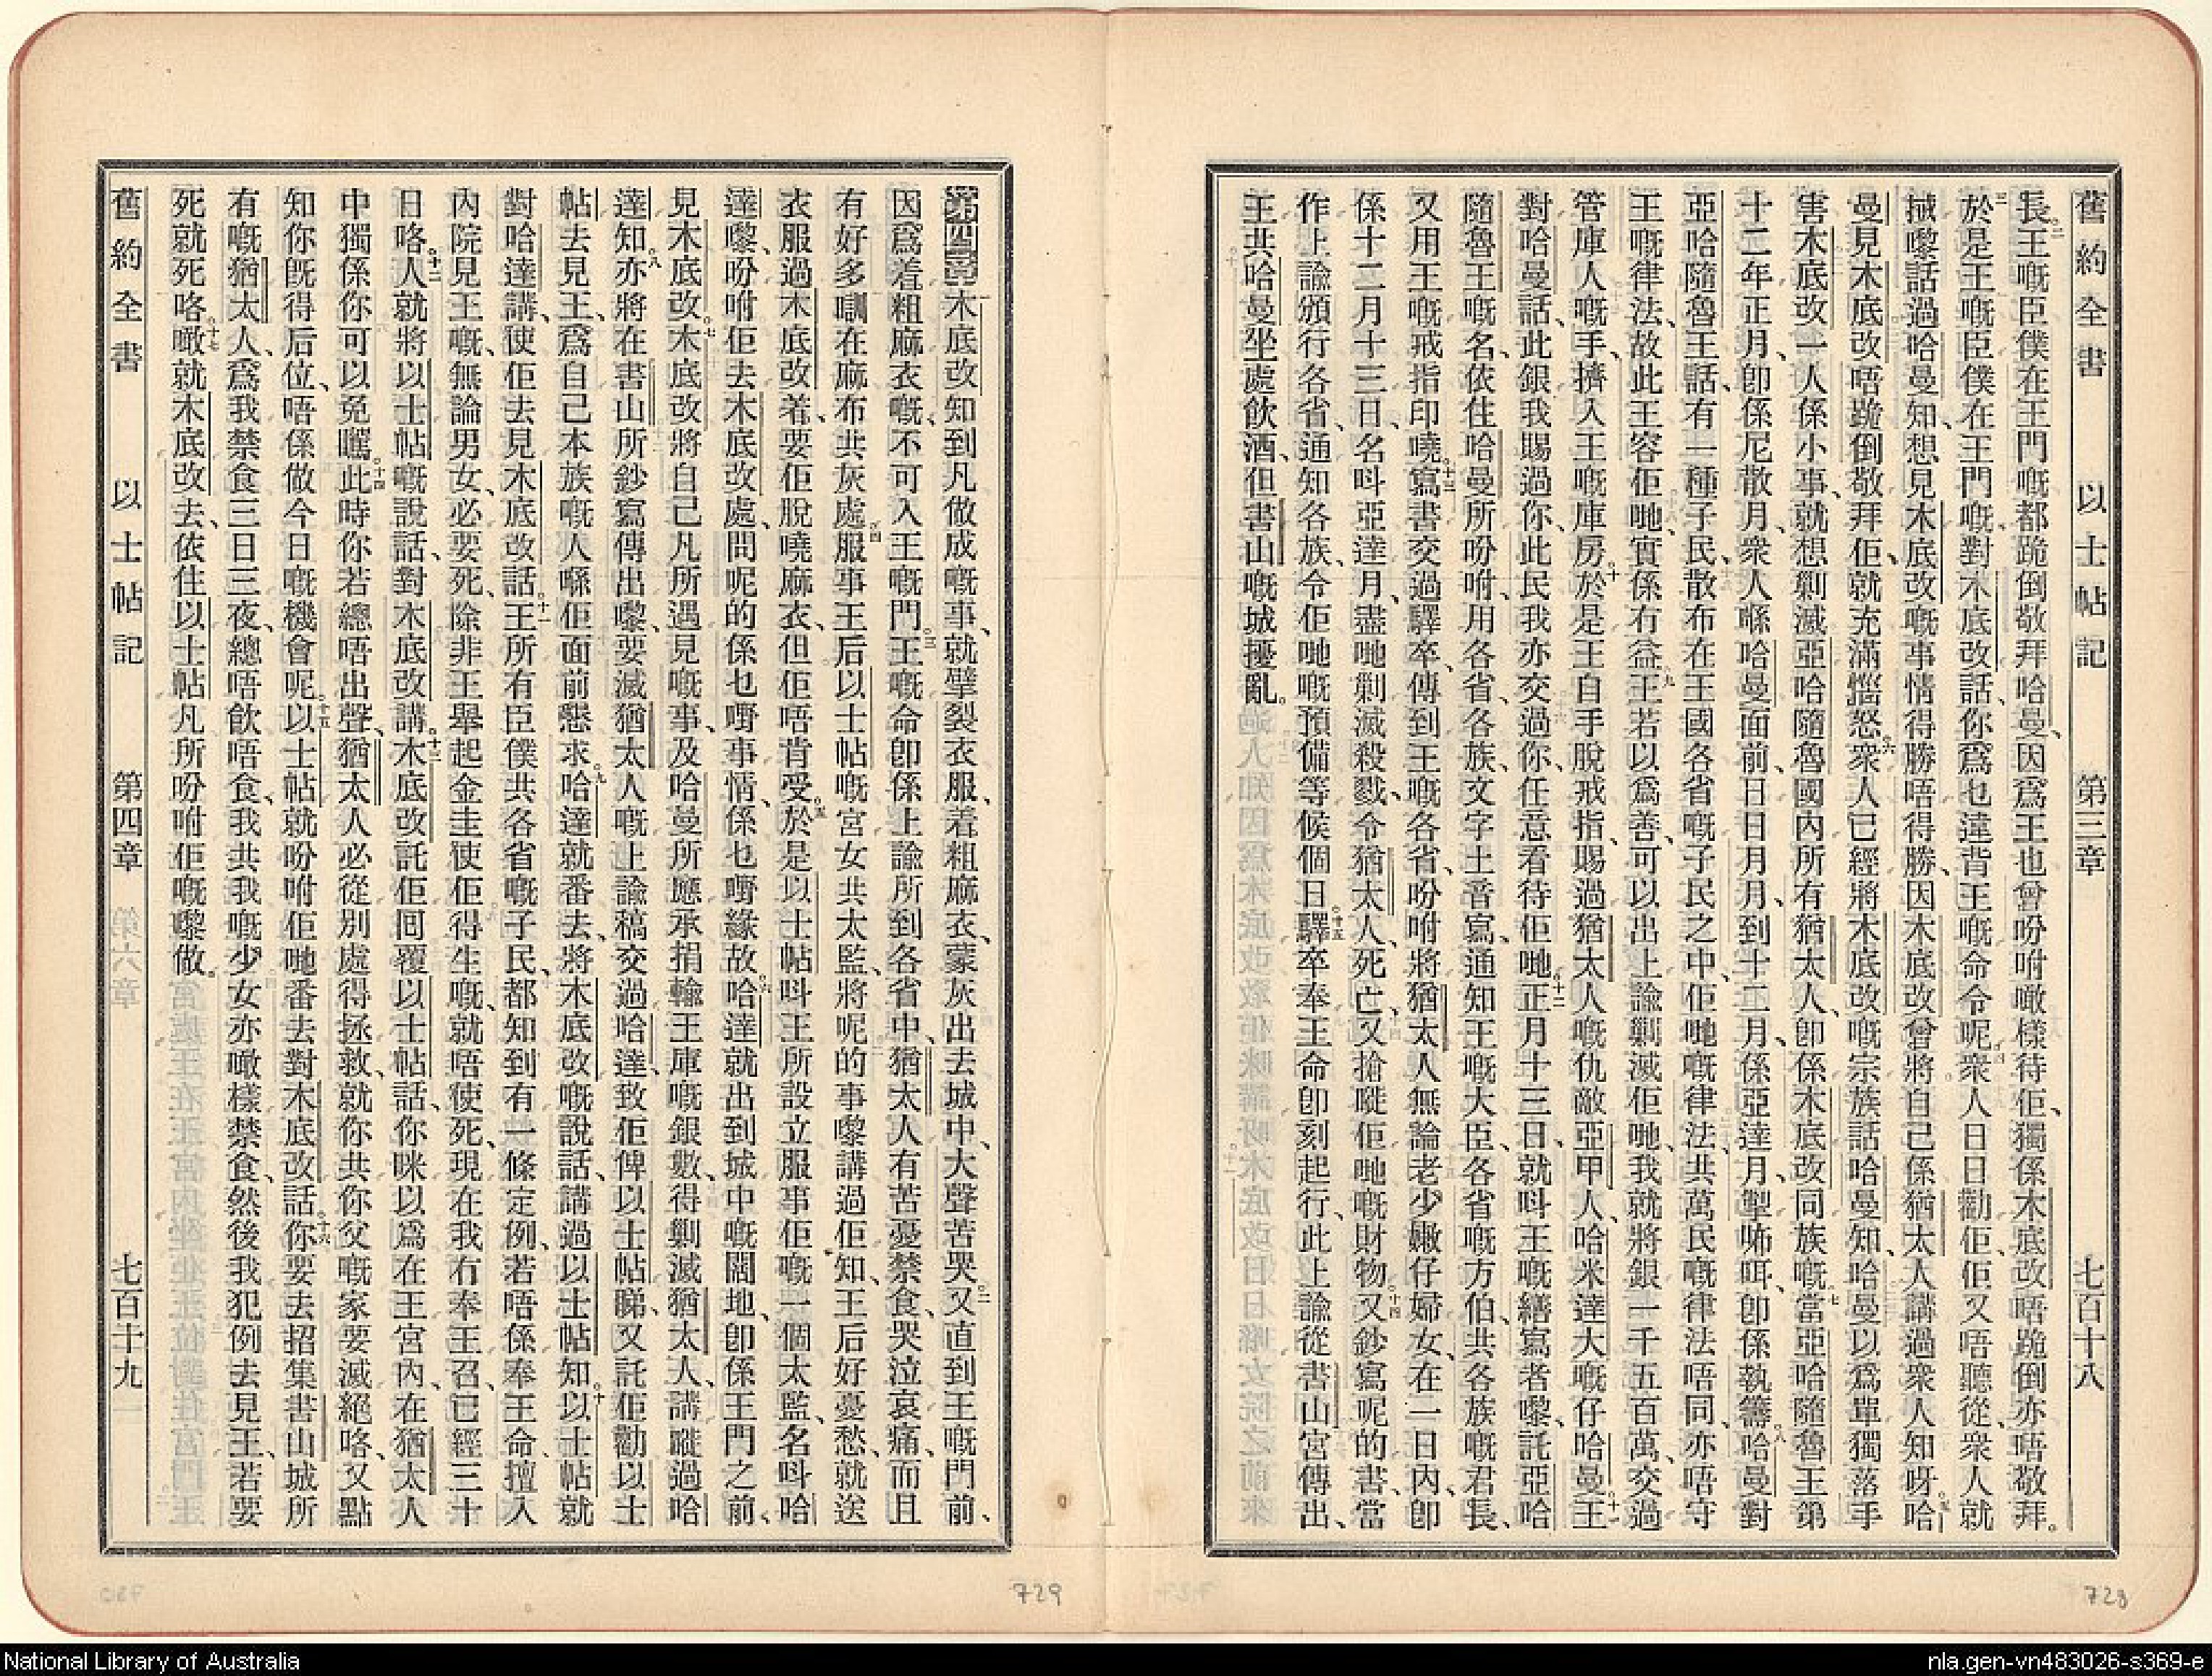 舊約全書 以士帖記 第三章 七百十八
長。二王嘅臣僕在王門嘅都跪倒敬拜哈曼、因爲王也曾吩咐噉樣待佢、獨係木底改唔跪倒亦唔敬拜。
三於是王嘅臣僕在王門嘅、對木底改話、你爲乜違背王嘅命令呢。四衆人日日勸佢、佢又唔聽從、衆人就
㨂嚟話過哈曼知、想見木底改嘅事情得勝唔得勝、因木底改曾將自己係猶太人講過衆人知呀。五哈
曼見木底改唔跪倒敬拜佢、就充滿惱怒。六衆人已經將木底改嘅宗族話哈曼知、哈曼以爲單獨落手
害木底改一人係小事、就想剿滅亞哈隨魯國內所有猶太人、卽係木底改同族嘅。七當亞哈隨魯王第
十二年正月、卽係尼散月、衆人喺哈曼面前、日日月月、到十二月、係亞達月、掣㗎咡、卽係執籌。八哈曼對
亞哈隨魯王話、有一種子民、散布在王國各省嘅子民之中、佢哋嘅律法、共萬民嘅律法唔同、亦唔守
王嘅律法、故此王容佢哋、實係冇益。九王若以爲善、可以出上諭剿滅佢哋、我就將銀一千五百萬、交過
管庫人嘅手、擠入王嘅庫房。十於是王自手脫戒指、賜過猶太人嘅仇敵、亞甲人、哈米達大嘅仔哈曼。十一王
對哈曼話、此銀我賜過你、此民我亦交過你、任意看待佢哋。十二正月十三日、就呌王嘅繕寫者嚟、託亞哈
隨魯王嘅名、依住哈曼所吩咐、用各省、各族、文字土音寫、通知王嘅大臣、各省嘅方伯、共各族嘅君長、
又用王嘅戒指印嘵。十三寫書交過驛卒、傳到王嘅各省、吩咐將猶太人無論老少嫩仔婦女、在一日內、卽
係十二月十三日、名呌亞達月、盡哋剿滅殺戮、令猶太人、死亡、又搶嘥佢哋嘅財物。十四又鈔寫呢的書、當
作上諭頒行各省、通知各族、令佢哋嘅預備等候個日。十五驛卒奉王命卽刻起行、此上諭從書山宮傳出、
王共哈曼坐處飮酒、但書山嘅城擾亂。
第四章 木底改知到凡做成嘅事、就擘裂衣服、着粗麻衣、蒙灰出去城中、大聲苦哭。二又直到王嘅門前、
因爲着粗麻衣嘅、不可入王嘅門。三王嘅命卽係上諭所到各省中、猶太人有苦憂禁食、哭泣哀痛、而且
有好多瞓在麻布共灰處。四服事王后以士帖嘅宮女共太監、將呢的事嚟講過佢知、王后好憂愁、就送
衣服過木底改着、要佢脫嘵麻衣、但佢唔肯受。五於是以士帖呌王所設立服事佢嘅一個太監、名呌哈
達嚟、吩咐佢去木底改處、問呢的係乜嘢事情、係乜嘢緣故。六哈達就出到城中嘅闊地、卽係王門之前、
見木底改。七木底改將自己凡所遇見嘅事、及哈曼所應承捐輸王庫嘅銀數、得剿滅猶太人、講嘥過哈
達知。八亦將在書山所鈔寫傳出嚟、要滅猶太人嘅上諭稿、交過哈達、致佢俾以士帖睇、又託佢勸以士
帖去見王、爲自己本族嘅人喺佢面前懇求。九哈達就番去、將木底改嘅說話、講過以士帖知。十以士帖就
對哈達講、使佢去見木底改話、十一王所有臣僕共各省嘅子民、都知到有一條定例、若唔係奉王命、擅入
內院見王嘅、無論男女、必要死、除非王舉起金圭使佢得生嘅、就唔使死、現在我冇奉王召、已經三十
日咯。十二人就將以士帖嘅說話、對木底改講。十三木底改託佢回覆以士帖話、你咪以爲在王宮內、在猶太人
中獨係你可以免曬。十四此時你若總唔出聲、猶太人必從別處得拯救、就你共你父嘅家要滅絕咯、又點
知你旣得后位、唔係做今日嘅機會呢。十五以士帖就吩咐佢哋番去對木底改話、十六你要去招集書山城所
有嘅猶太人、爲我禁食三日三夜、總唔飮唔食、我共我嘅少女亦噉樣禁食、然後我犯例去見王、若要
死就死咯。十七噉就木底改去、依住以士帖凡所吩咐佢嘅嚟做。
舊約全書 以士帖記 第四章 七百十九
728
729
National Library of Australia
nla.gen-vn483026-s369-e